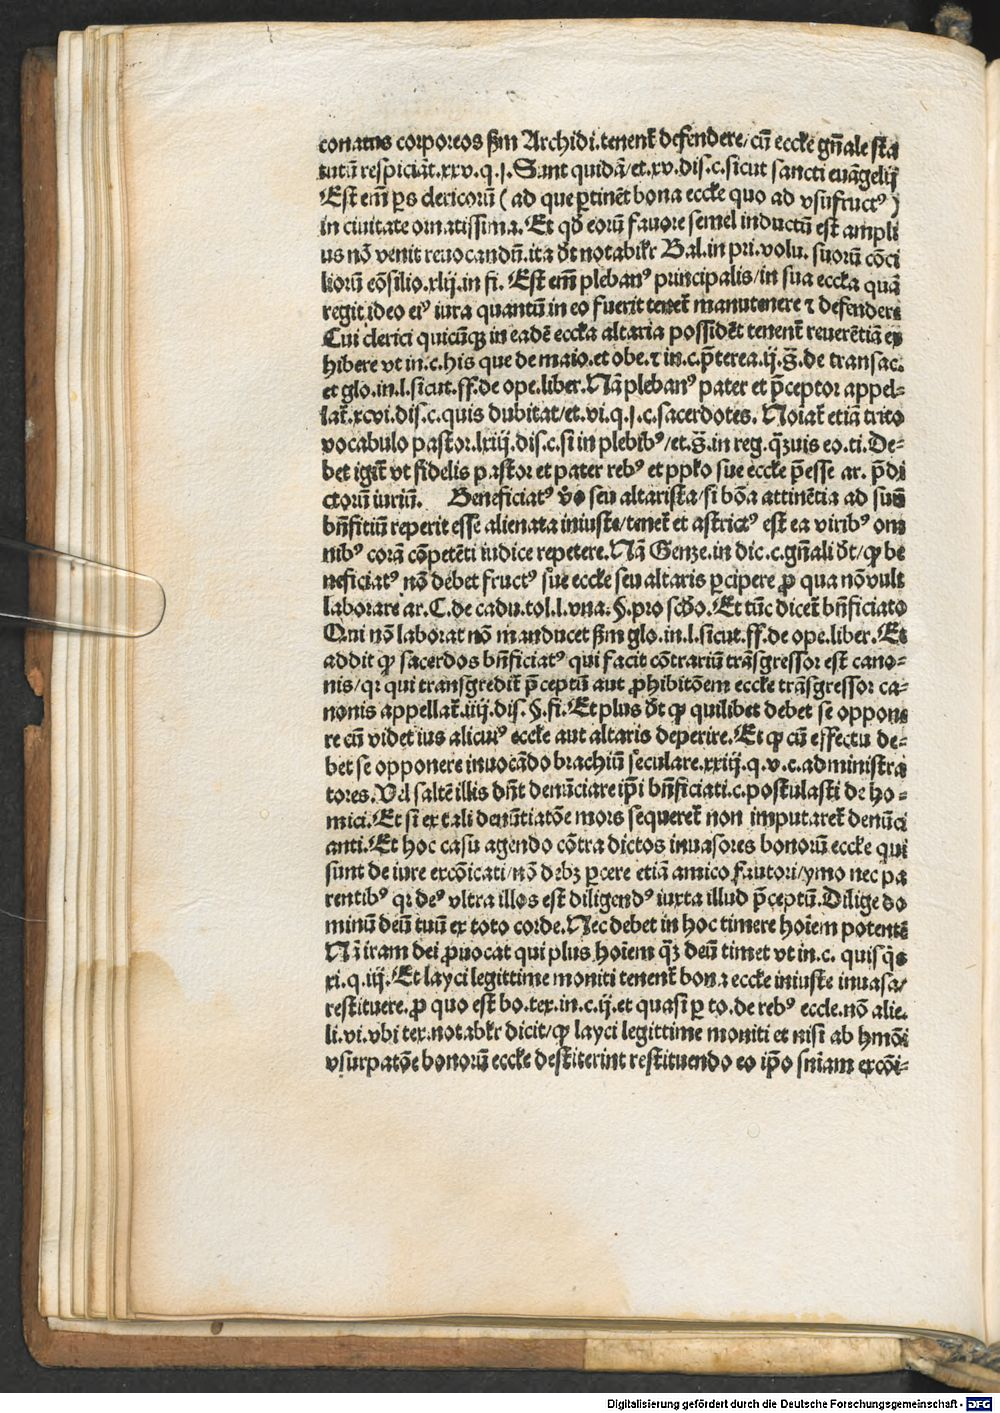 conatus corporeos ẜm Archidi.tenent᷑ defendere/cū eccl̄e gn̄ale sta
tutū respiciāt.xxv.q.j.Sunt quidā/et.xv.dis.c.sicut sancti euāgelij
Est em̄ ꝑs clericorū ( ad que ꝑtinēt bona eccl̄e quo ad vsufructꝰ )
in ciuitate ornatissima. Et qđ eorū fauore semel inductū est ampli
us nō venit reuocandū.ita đt notabilr̄ Bal.in pri.volu. suorū cōci
liorū cōsilio.xlij.in fi. Est em̄ plebanꝰ principalis/in sua eccl̄a quā
regit ideo eiꝰ iura quantū in eo fuerit tenet᷑ manutenere ⁊ defendere
Cui clerici quicūqꝫ in eadē eccl̄a altaria possidēt tenent᷑ reuerētiā ex
hibere vt in.c.his que de maio.et obe.⁊ in.c.p̄terea.ij.§̄.de transac.
et glo.in.l.sicut.ff.de ope.liber.Nā plebanꝰ pater et p̄ceptor appel-
lat᷑.xcvi.dis.c.quis dubitat/et.vi.q.j.c.sacerdotes. Noiat᷑ etiā trito
vocabulo pastor.lxiij.dis.c.si in plebibꝰ/et.§̄.in reg.q̄ꝫuis eo.ti.De-
bet igit᷑ vt fidelis pastor et pater rebꝰ et pplo sue eccl̄e p̄esse ar. p̄di
ctorū iuriū. Beneficiatꝰ v̄o seu altarista/si bōa attinētia ad suū
bn̄fitiū reperit esse alienata iniuste/tenet᷑ et astrictꝰ est ea viribꝰ om
nibꝰ corā cōpetēti iudice repetere.Nā Genze.in dic.c.gn̄ali đt/ꝙ be
neficiatꝰ nō debet fructꝰ sue eccl̄e seu altaris ꝑcipere ꝓ qua nō vult
laborare ar.C.de cadu.tol.l.vna.§.pro scđo.Et tūc dicet᷑ bn̄ficiato
Qui nō laborat nō manducet ẜm glo.in.l.sicut.ff.de ope.liber.Et
addit ꝙ sacerdos bn̄ficiatꝰ qui facit cōtrariū trāsgressor est cano-
nis/qr qui transgredit᷑ p̄ceptū aut ꝓhibitōem eccl̄e trāsgressor ca-
nonis appellat᷑.iiij.dis.§.fi.Et plus đt ꝙ quilibet debet se oppone
re cū videt ius alicuiꝰ eccl̄e aut altaris deperire.Et ꝙ cū effectu de-
bet se opponere inuocādo brachiū seculare.xxiij.q.v.c.administra
tores.Vel saltē illis dn̄t denūciare ip̄i bn̄ficiati.c.postulasti de ho-
mici.Et si ex tali denūtiatōe mors sequeret᷑ non imputaret᷑ denūci
anti.Et hoc casu agendo cōtra dictos inuasores bonorū eccl̄e qui
sunt de iure excōicati/nō debꝫ ꝑcere etiā amico fautori/ymo nec pa
rentibꝰ qr deꝰ vltra illos est diligendꝰ iuxta illud p̄ceptū.Dilige do
minū deū tuū ex toto corde.Nec debet in hoc timere hoīem potentē
Nā iram dei ꝓuocat qui plus hoīem q̄ꝫ deū timet vt in.c. quisq̄s
xi.q.iij.Et layci legittime moniti tenent᷑ bona eccl̄e iniuste inuasa/
restituere.ꝓ quo est bo.tex.in.c.ij.et quasi ꝑ to.de rebꝰ eccle.nō alie.
li.vi.vbi tex.notablr̄ dicit/ꝙ layci legittime moniti et nisi ab hmōi
vsurpatōe bonorū eccl̄e destiterint restituendo eo ip̄o sn̄iam excōi-
Digitalisierung gefördert durch die Deutsche Forschungsgemeinschaft - DFG